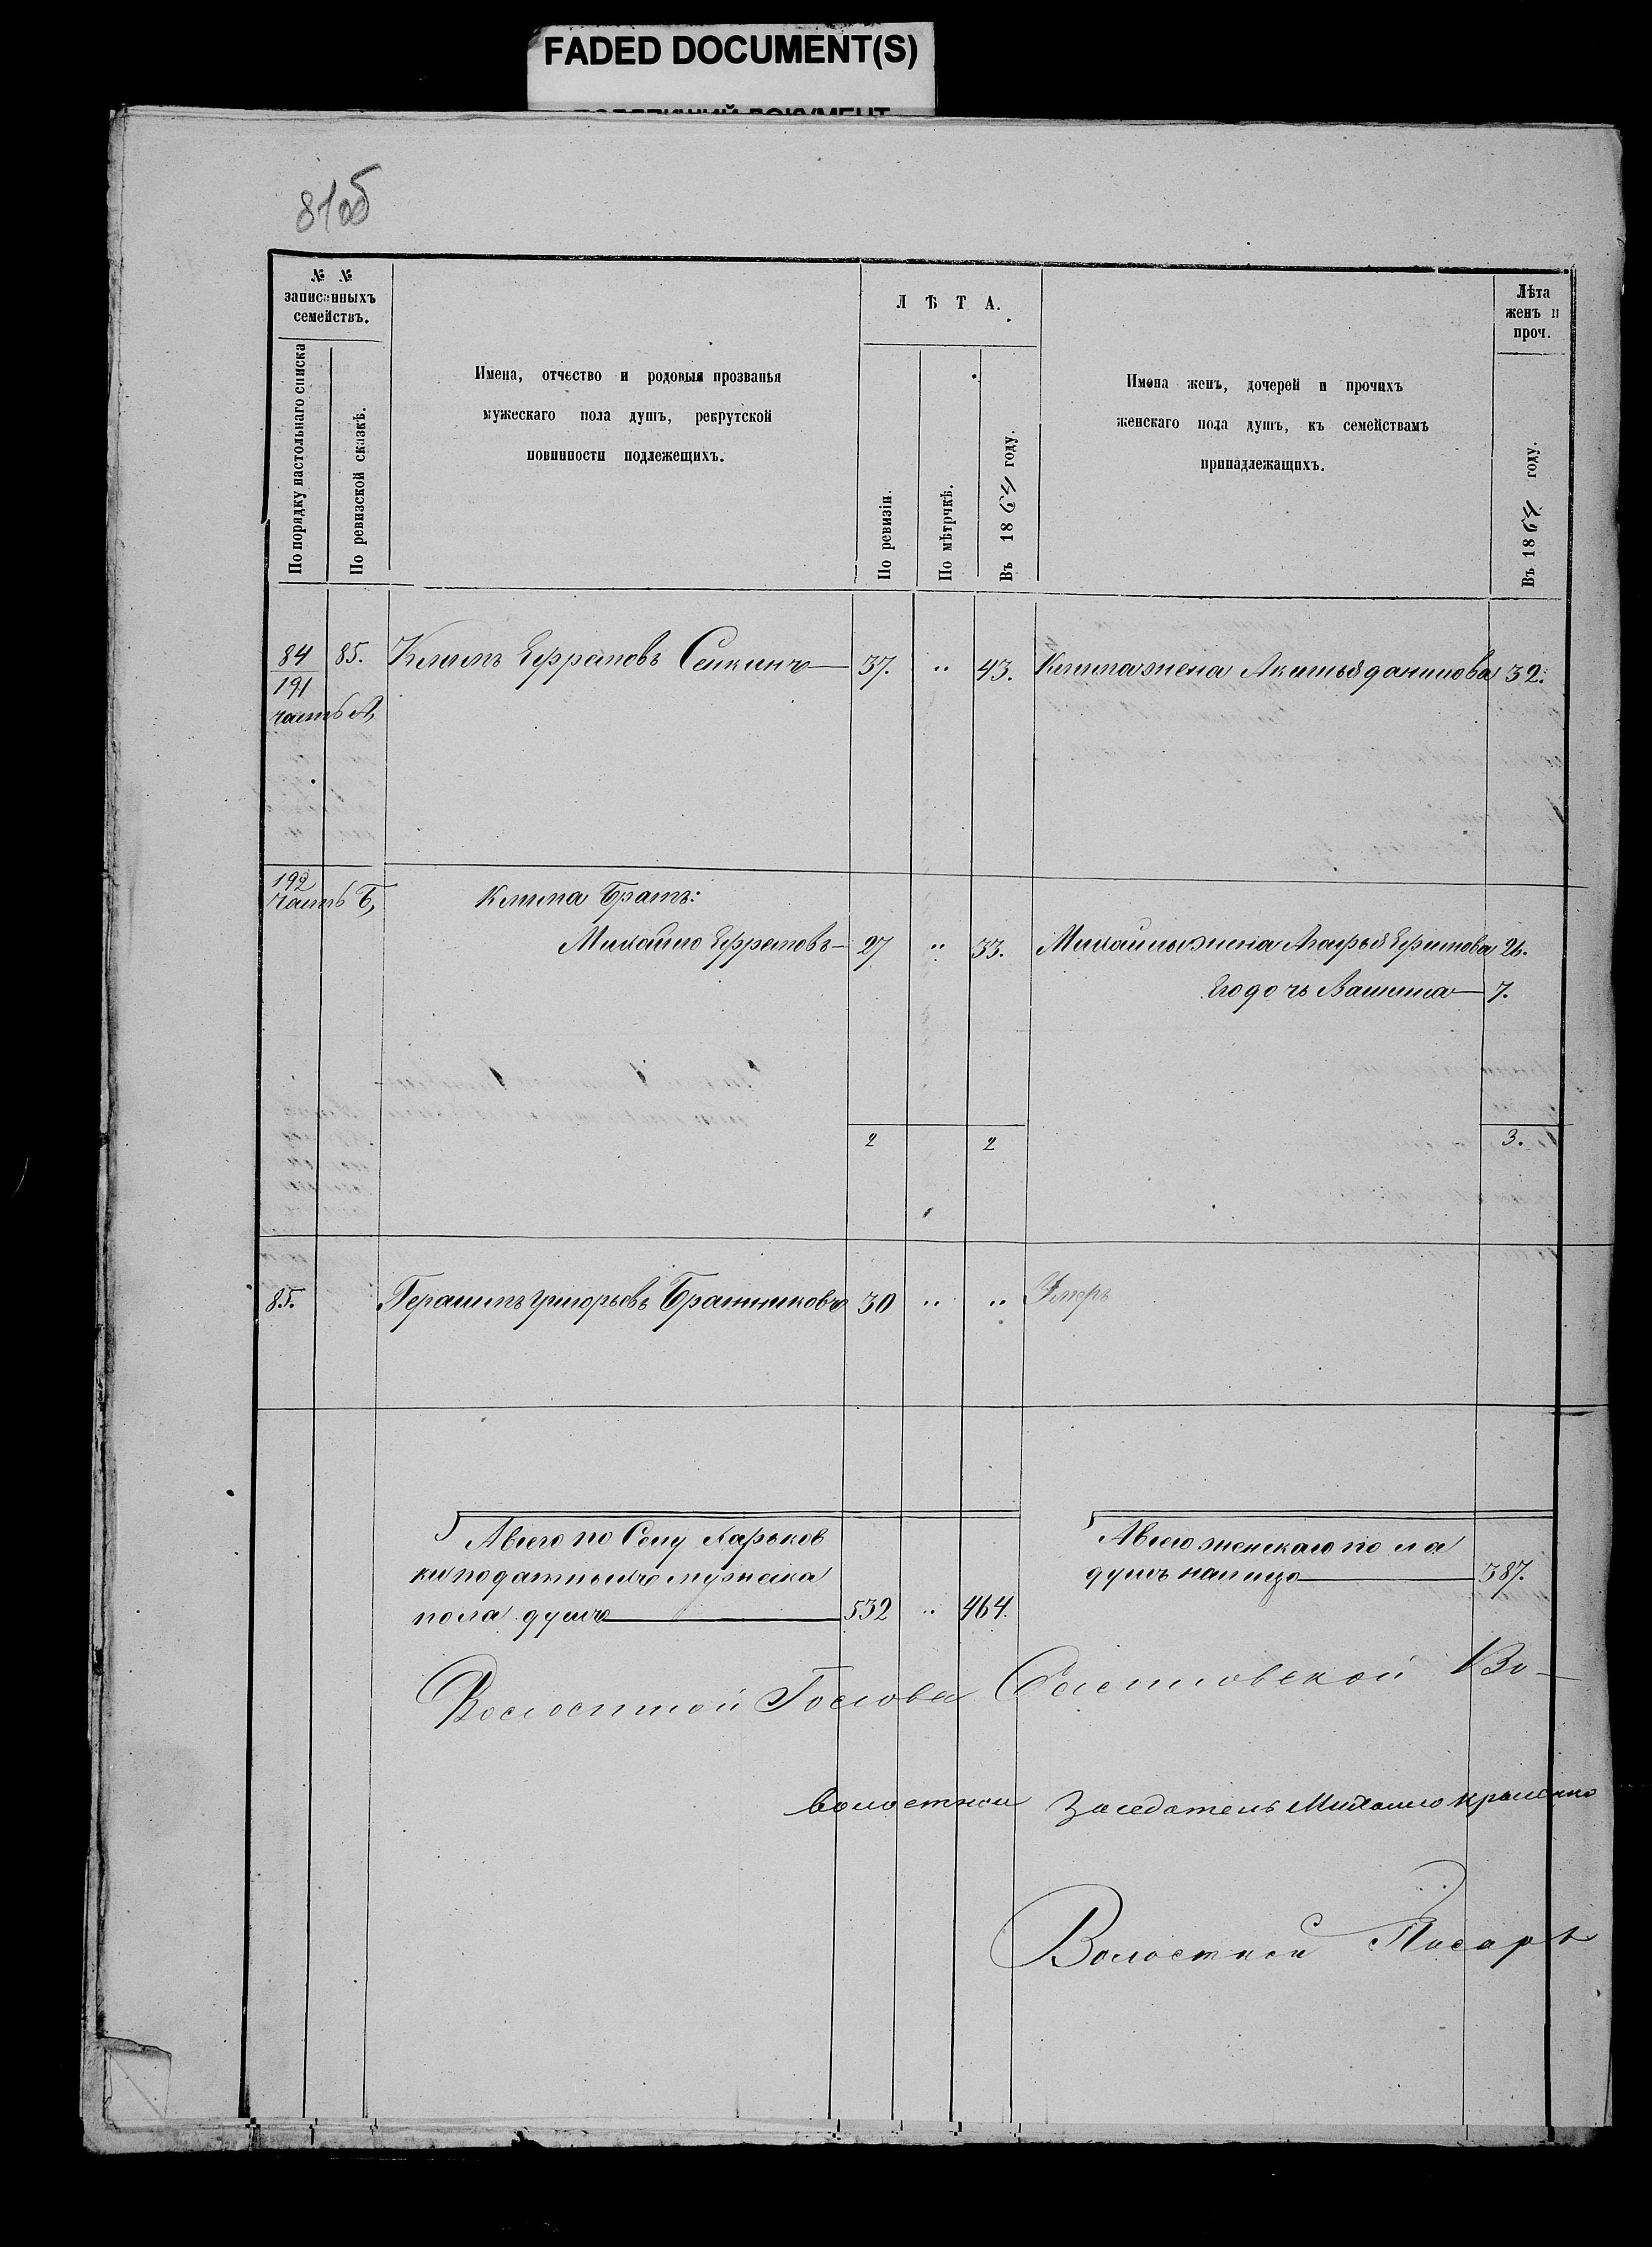 FADED DOCUMENT(S)
81об
№ №
записанныхъ
семействъ.
По порядку настольнаго списка
По ревизской сказкѣ.
Имена, отчество и родовыя прозванья
мужескаго пола душъ, рекрутской
повинности подлежещихъ.
ЛѢТА.
По ревизіи.
По мѣтрчкѣ.
Въ 1864 году.
Имена женъ, дочерей и прочихъ
женскаго пола душъ, къ семействамъ
принадлежащихъ.
Лѣта
женъ и
проч.
Въ 1864 году.
84 85. Климъ Ефремовъ Сенкинъ 37. " 43. Клима жена Акинья данилова 32.
191
часть А,
192
часть Б, Клима Братъ:
Михайло Ефремовъ 27 " 33. Михайлы жена Агафья Ефимова 24.
Его дочь 7.
2 2 3.
85. Герасимъ григорьевъ Бражниковъ 30 " " Умеръ
Авсего по Селу Харьков
ки податныхъ мужеска
пола душъ 532 " 464.
Авсего женскаго пола
душъ налицо 387.
Волостной Голова
волостной Заседатель Михайло
Волостной Писарь